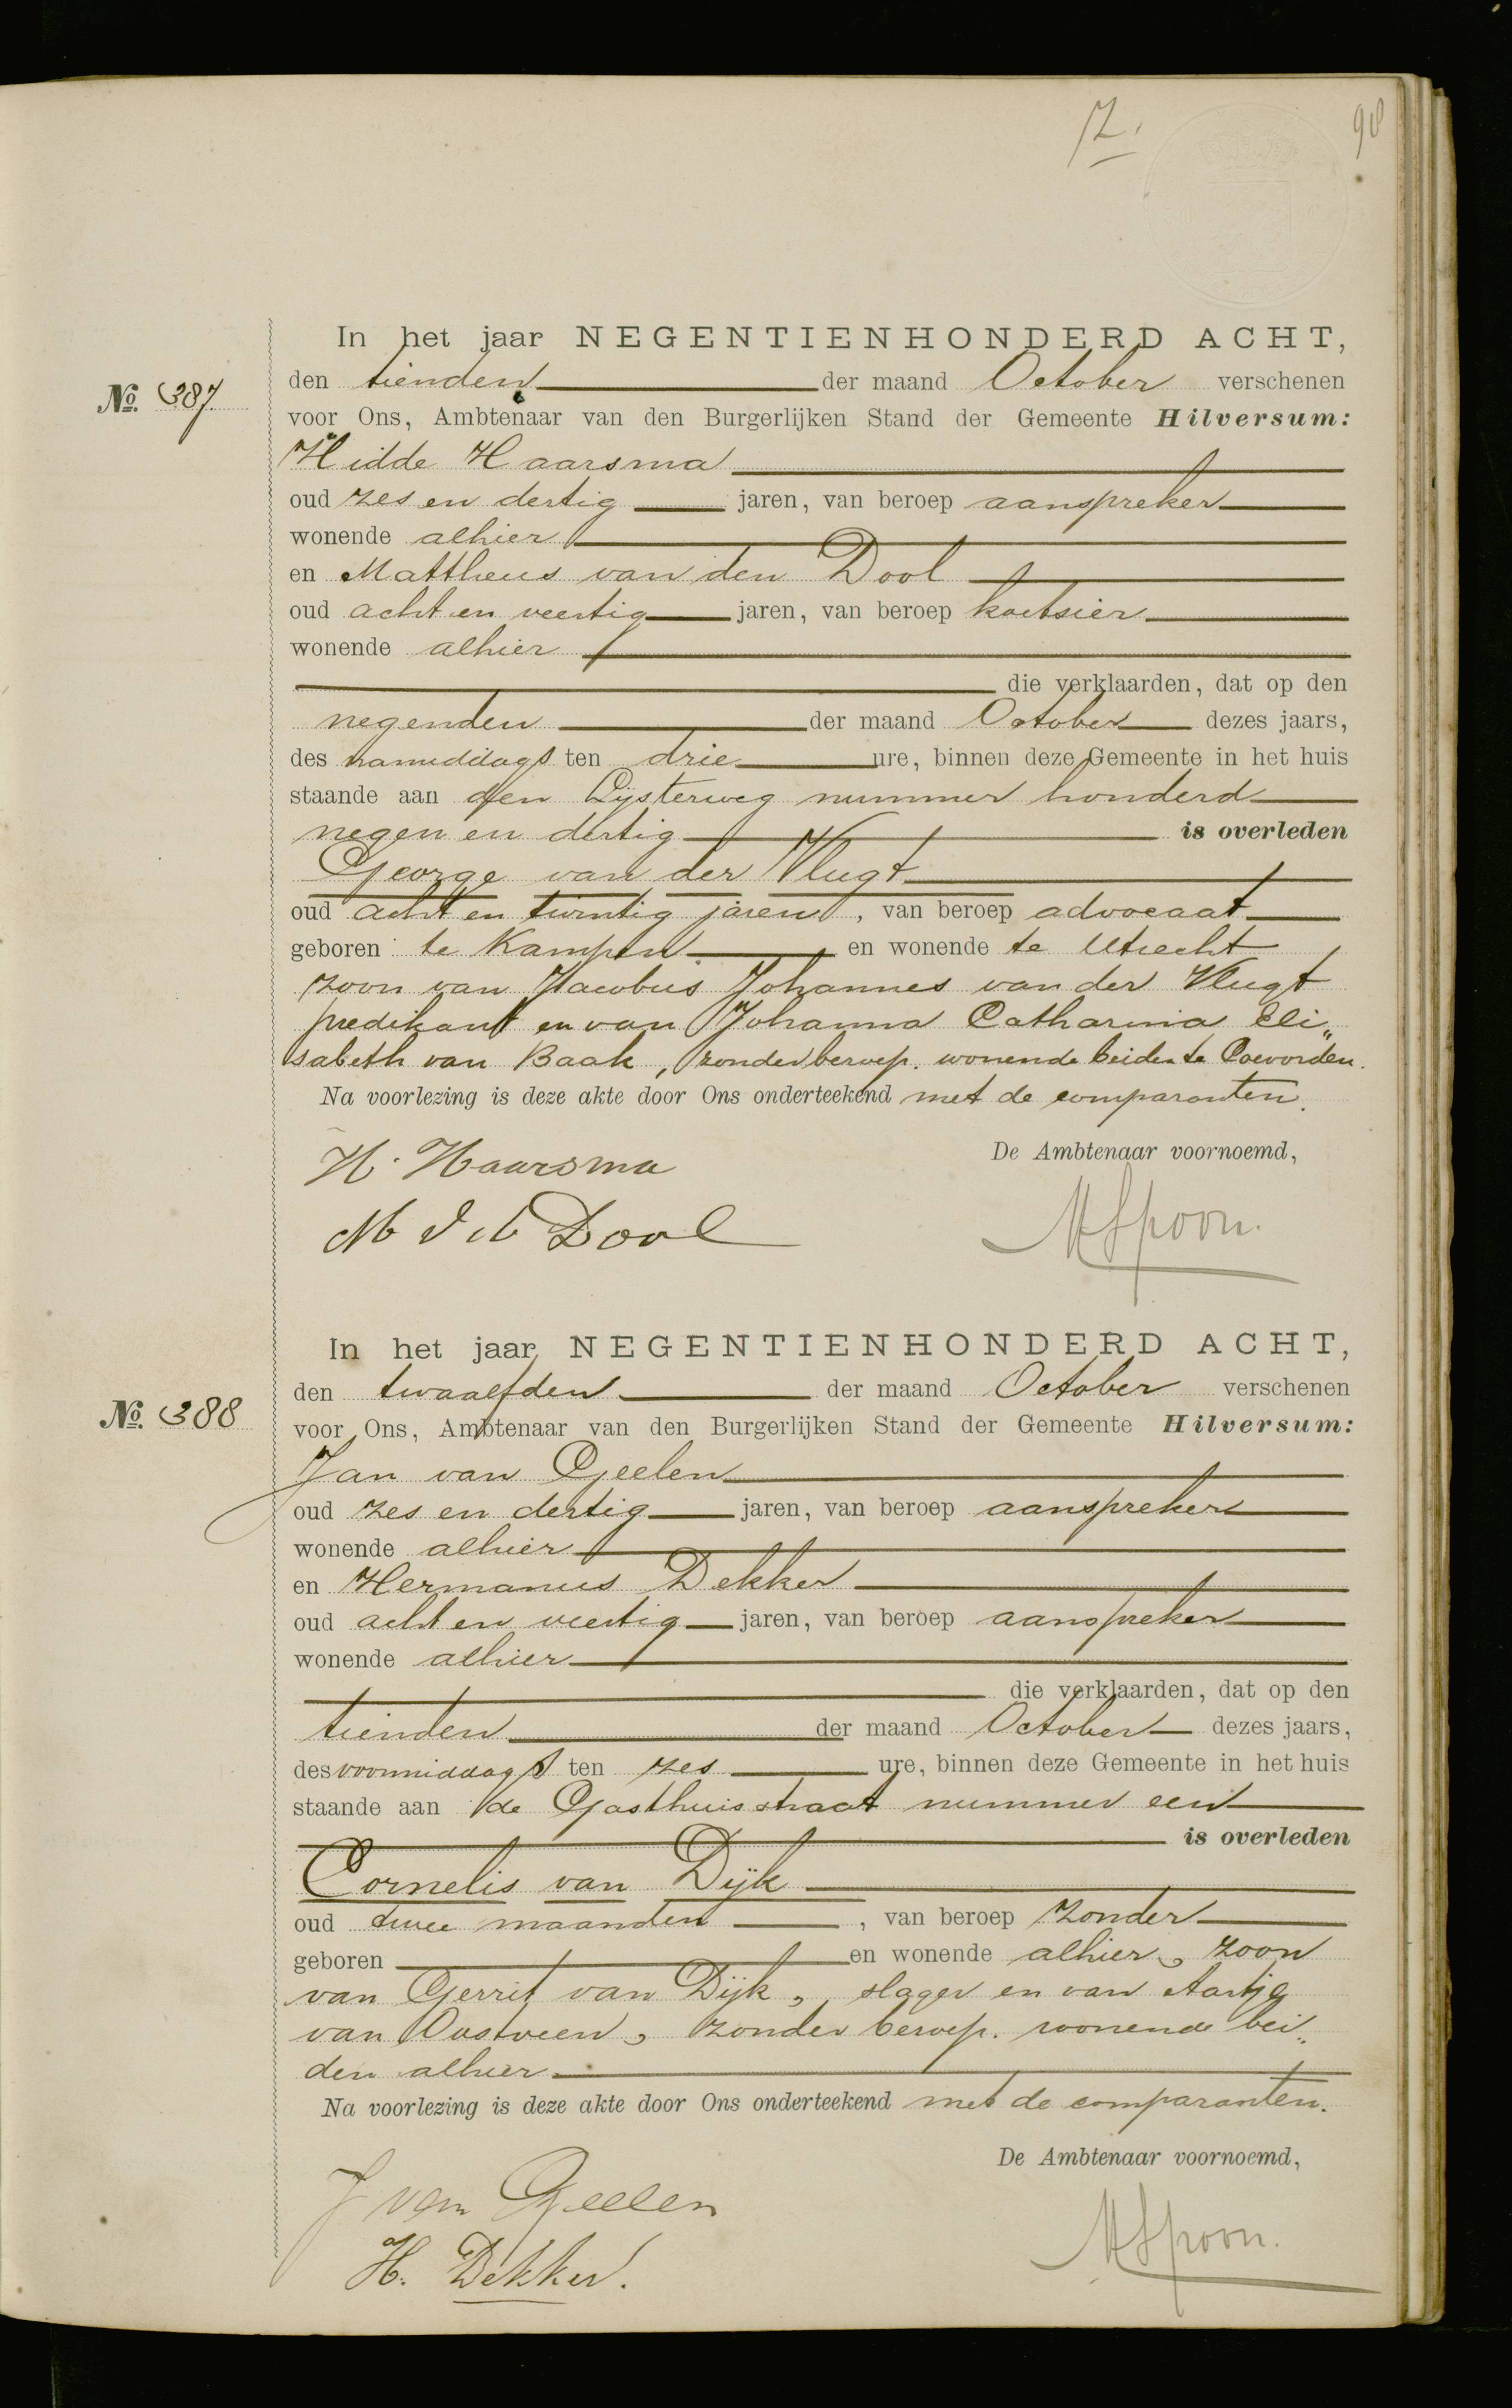 98
In het jaar NEGENTIENHONDERD ACHT,
den tienden der maand October verschenen
No. 387
voor Ons, Ambtenaar van den Burgerlijken Stand der Gemeente Hilversum:
Hidde Haarsma
oud zes en dertig jaren, van beroep aanspreker
wonende alhier
en Mattheus van den Dool
oud acht en veertig jaren, van beroep koetsier
wonende alhier
die verklaarden, dat op den
negenden der maand October dezes jaars,
des namiddags ten drie ure, binnen deze Gemeente in het huis
staande aan den Lijsterweg nummer honderd
negen en dertig is overleden
George van der Vlugt
oud acht en twintig jaren, van beroep advocaat
geboren te Kampen en wonende te Utrecht
zoon van Jacobus Johannes van der Vlugt
predikant en van Johanna Catharina Eli„
sabeth van Baak, zonder beroep. wonende beiden te Coevorden.
Na voorlezing is deze akte door Ons onderteekend met de comparanten.
De Ambtenaar voornoemd,
H. Haarsma
M v d Dool
Spoon.
In het jaar NEGENTIENHONDERD ACHT,
den twaalfden der maand October verschenen
No. 388
voor Ons, Ambtenaar van den Burgerlijken Stand der Gemeente Hilversum:
Jan van Geelen
oud zes en dertig jaren, van beroep aanspreker
wonende alhier
en Hermanus Dekker
oud acht en veertig jaren, van beroep aanspreker
wonende alhier
die verklaarden, dat op den
tienden der maand October dezes jaars,
des voormiddags ten zes ure, binnen deze Gemeente in het huis
staande aan de Gasthuisstraat nummer een
is overleden
Cornelis van Dijk
oud twee maanden, van beroep zonder
geboren en wonende alhier, zoon
van Gerrit van Dijk, slager en van Aartje
van Oostveen, zonder beroep. wonende bei„
den alhier
Na voorlezing is deze akte door Ons onderteekend met de comparanten.
De Ambtenaar voornoemd,
J van Geelen
H. Dekker.
Spoon.